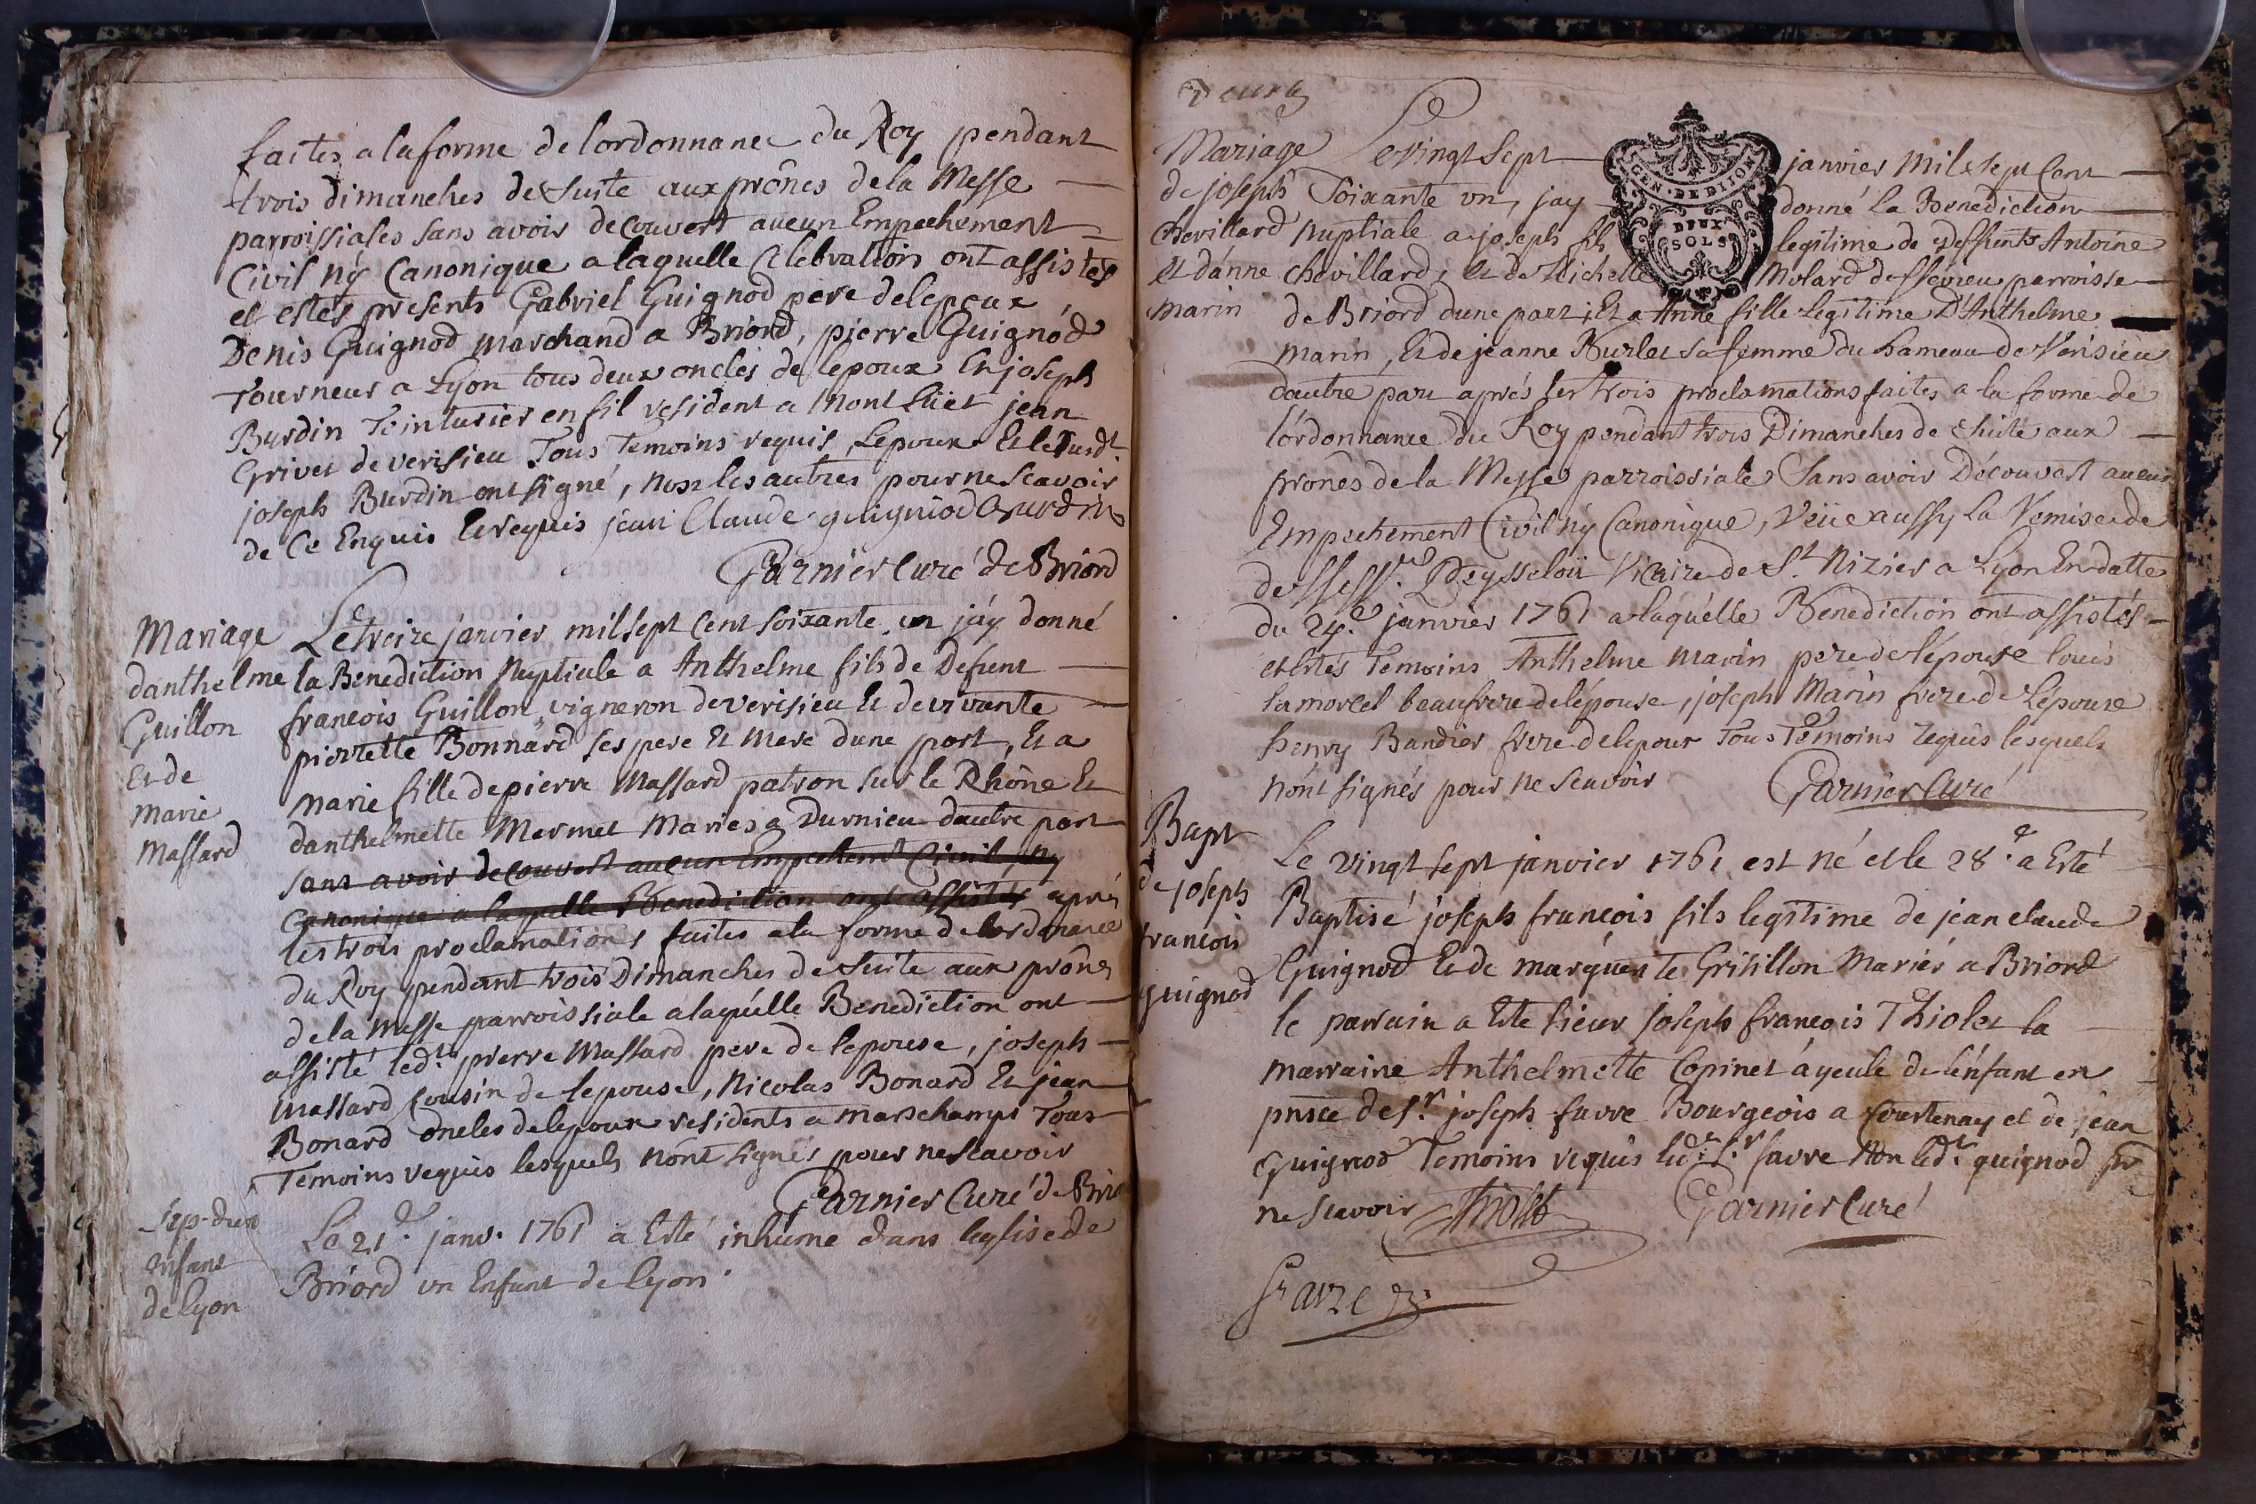 faites a la forme de lordonnance du Roy pendant
trois dimanches de suite aux prônes de la Messe
parroissiales sans avoir decouvert aucun Empechement
Civil ny Canonique a laquelle Celebration ont assistes
et estes presents Gabriel Guignod pere de lepoux
Denis Guignod marchand a Briord, pierre Guignod
Tourneur a Lyon tous deux oncles de lepoux Et joseph
Burdin Teinturier en fil resident a Mont luet jean
Grivet de verisieu Tous Temoins requis, Lepoux Et le susdt
joseph Burdin ont signé, non les autres pour ne scavoir
de Ce Enquis Et requis jean Claude guigniod Burdin
Garnier Curé de Briord
Mariage
danthelme
Guillon
Et de
Marie
Massard
Le treize janvier mil sept Cent soixante un jáy donné
la Benediction Nuptiale a Anthelme fils de Defunt
francois Guillon vigneron de verisieu Et de vivante
pierrette Bonnard ses pere Et mere dune part, Et a
Marie fille de pierre Massard patron sur le Rhône Et
danthelmette Mermet Maries a Durnieu dautre part
sans avoir decouvert aucun Empechemt Civil ny
Canonique a laquelle Benediction ont assistés aprés
les trois proclamations faites a la forme de lordonance
du Roy pendant trois Dimanches de suite aux prônes
de la Messe parroissiale a laquélle Benediction ont
assisté ledt pierre Massard pere de lepouse, joseph
Massard Cousin de lepouse, Nicolas Bonard Et jean
Bonard oncles de lepoux residents a marchamps Tous
Temoins requis lesquels nónt signés pour ne scavoir
Garnier Curé de Brior
Sep. dun
enfant
de lyon
Le 21e janv. 1761 a Esté inhúme dans leglise de
Briord un Enfant de lyon
Mariage
de joseph
Chevillard
Et dánne
marin
Le vingt Sept janvier Mil sept Cent
Soixante un, jay donné la Benediction
Nuptiale a joseph fils legitime de deffunts Antoine
Chevillard, Et de Michelle Molard de parroisse
de Briord dune part, Et a Anne fille legitime D'Anthelme
Marin, Et de jeanne Burlet sa femme du hameau de Verisieu
dautre part aprés les trois proclamations faites a la forme de
lórdonnance du Roy pendant trois Dimanches de suite aux
prônes de la Messe parroissiale Sans avoir Découvert aucun
Empechement Civil ny Canonique, Veüe aussy la Remise de
de Vicaire de St Nizier a Lyon En datte
du 24e janvier 1761 a laquélle Benediction ont assistés
et Estés Temoins Anthelme Marin pere de lépouse louis
beaufrere de lépouse, joseph Marin frere de Lépouse
henry Bandier frere de lepoux Tous Témoins requis lesquels
nónt signés pour ne scavoir
Garnier Curé
Bapt
de joseph
francois
guignod
Le vingt sept janvier 1761 est né et le 28e a Esté
Baptisé joseph francois fils legitime de jean claude
Guignod Et de marguerite Grisillon Mariés a Briord
le parrain a Este sieur joseph francois Thiolet la
marraine Anthelmette Copinet áyeule de lénfant en
pnsce de Sr joseph favre Bourgeois a Courtenay et de jean
Guignod Temoins requis ledt Sr favre Non ledt guignod pr
ne scavoir Thiolet
Garnier Curé
favre